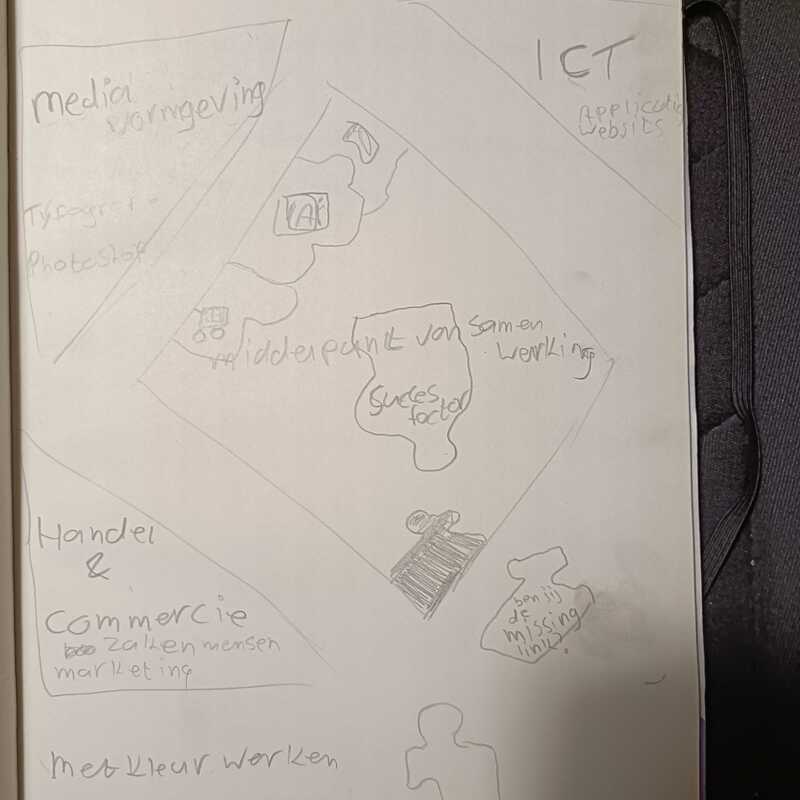 media
vormgeving
ICT
Applicatie
websits
Typografie
Photoshop
middelpunkt van samen
werking
Succes
factor
Handel
&
Commercie
zakenmensen
marketing
ben jij
de
missing
link?
met kleur werken